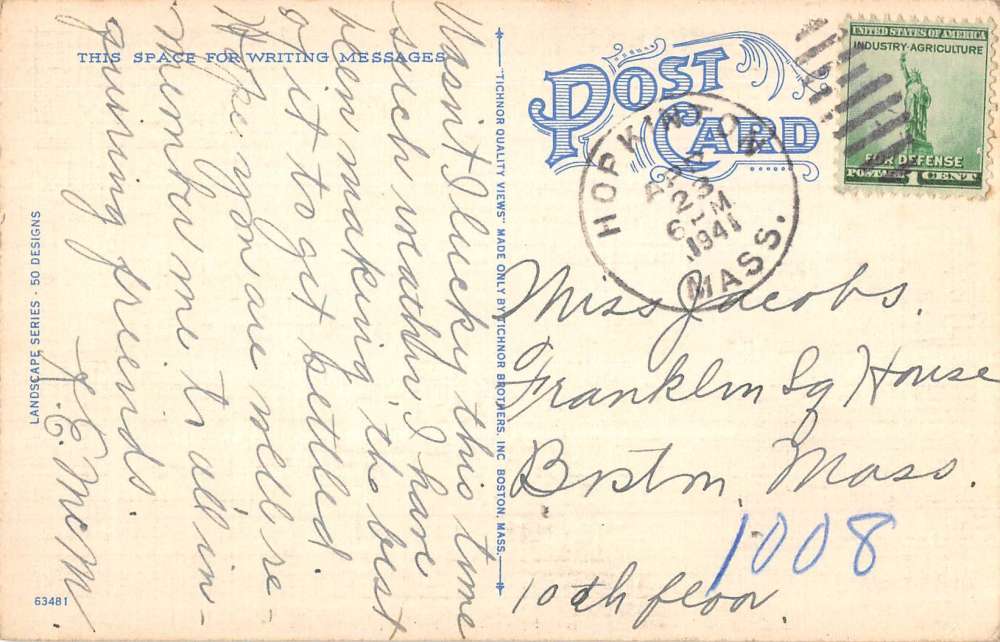 THIS SPACE FOR WRITING MESSAGES
Wasn't I lucky this time
such weather, I have
been making the best
of it to get settled.
Hope you are well re-
member me to all in-
quiring friends.
J. E. McM
LANDSCAPE SERIES - 50 DESIGNS
63481
"TICHNOR QUALITY VIEWS" MADE ONLY BY TICHNOR BROTHERS, INC BOSTON, MASS.
POST CARD
HOPKINTON
APR
23
6 PM
1941
MASS.
UNITED STATES OF AMERICA
INDUSTRY·AGRICULTURE
FOR DEFENSE
POSTAGE 1 CENT
Miss Jacobs.
Franklin Sq House
Boston Mass.
1008
10th floor